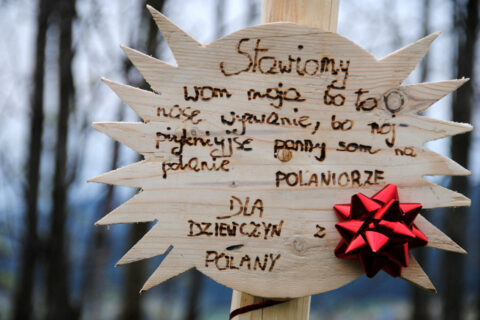 Stawiomy
wom moja bo to
nase wyzwanie, bo noj-
piykniyjse panny som na
polanie
POLANIORZE
DLA
DZIEWCZYN z
POLANY